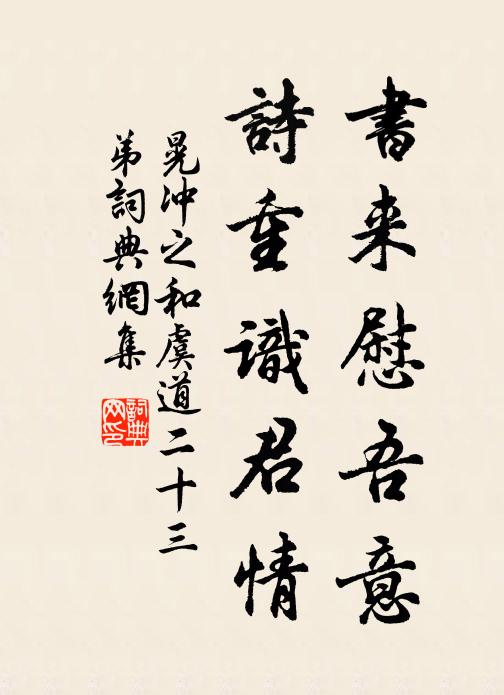 書来慰吾意
詩重識君情
晁沖之和虞道二十三
弟詞典網集
詞典
网印